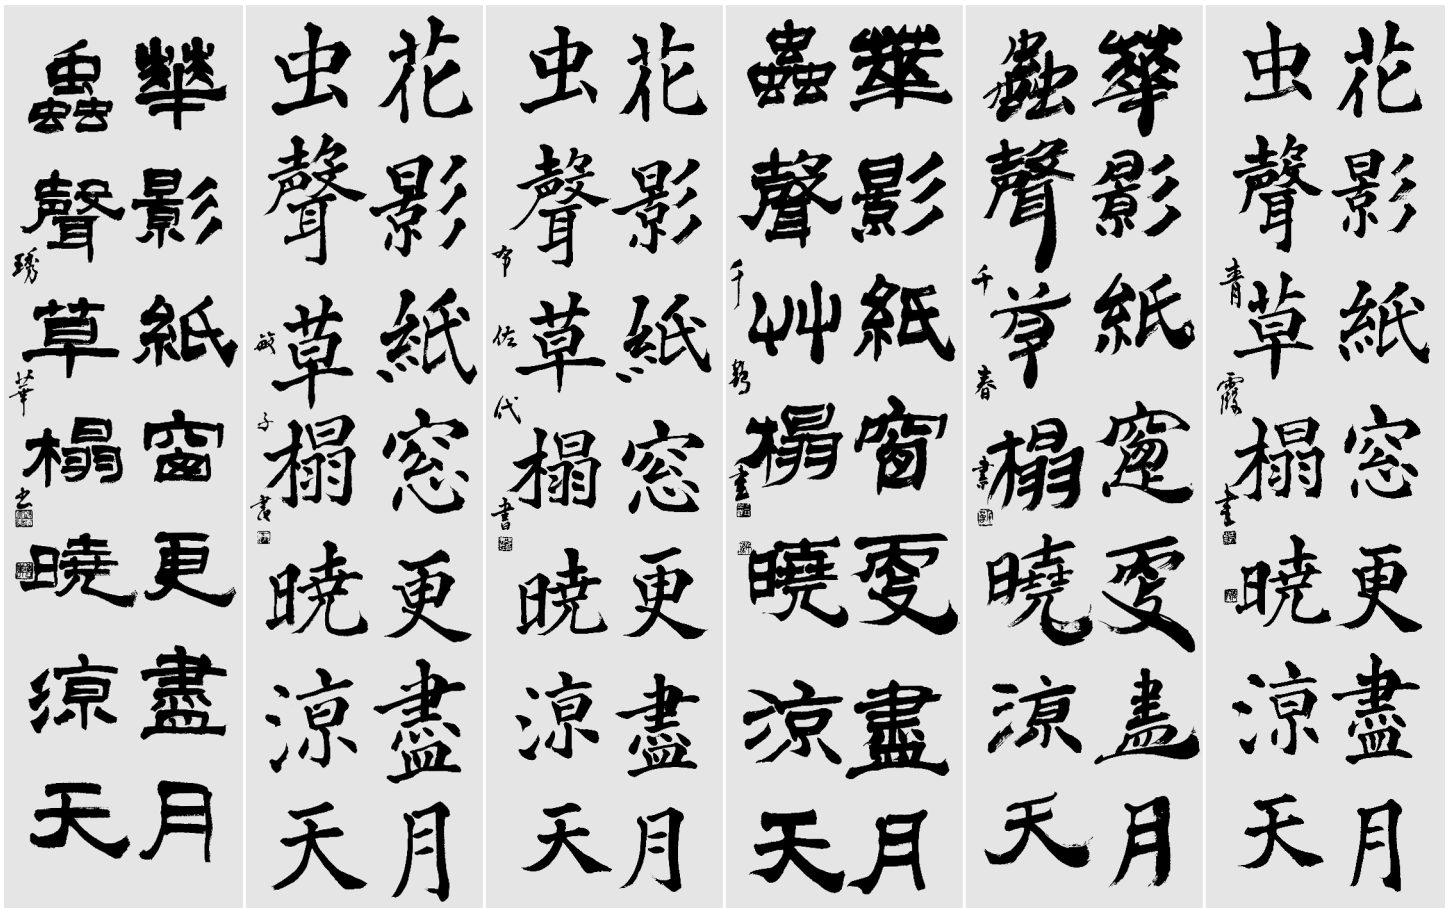 花影紙窓更盡月
虫聲草榻暁涼天
青霞書
華影紙窓更盡月
蟲聲草榻曉涼天
千春書
華影紙窗更盡月
蟲聲艸榻曉涼天
千鶴書
花影紙窓更盡月
虫聲草榻暁涼天
布佐代書
花影紙窓更盡月
虫聲草榻暁涼天
敏子書
華影紙窗更盡月
蟲聲草榻暁涼天
琇華書